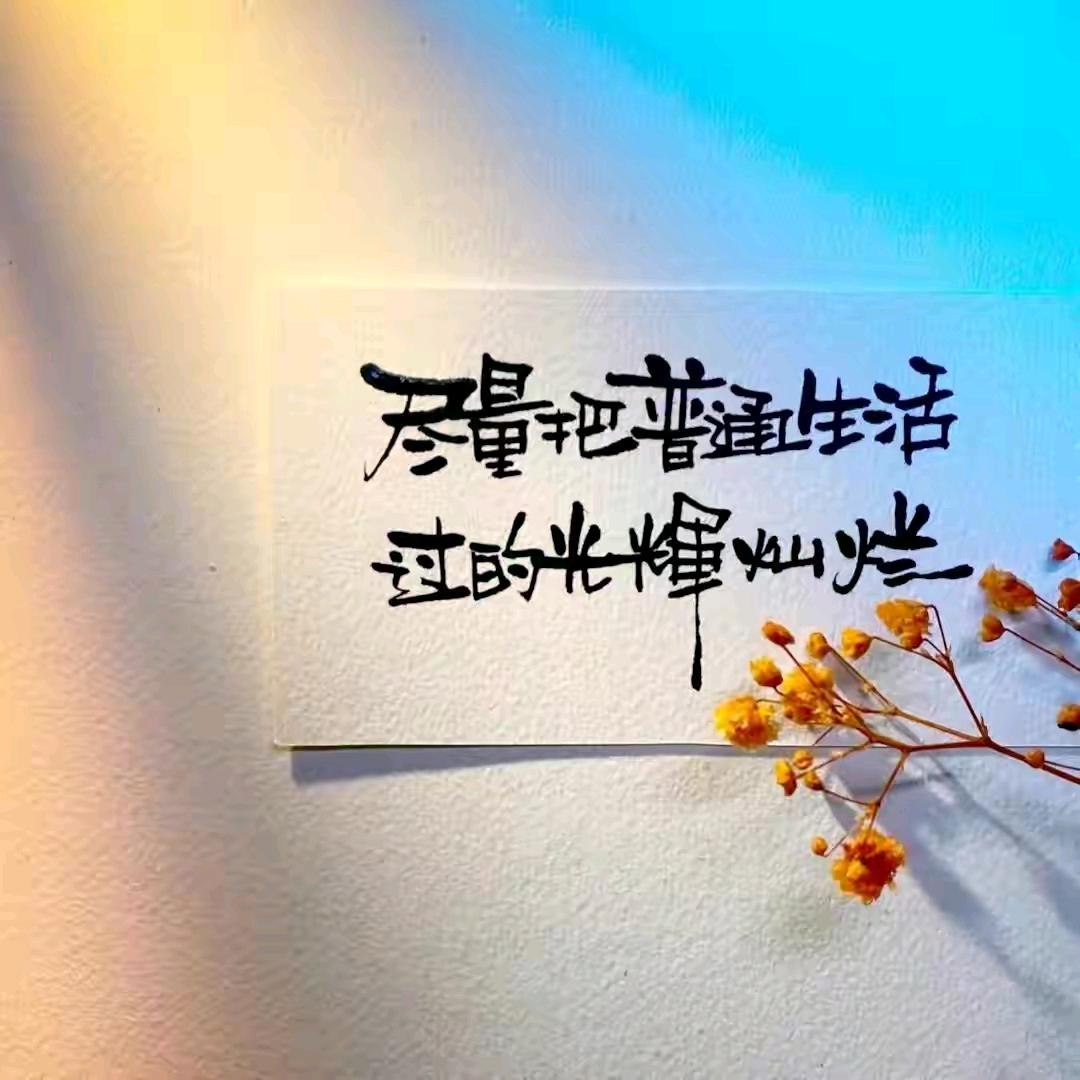 尽量把普通生活
过的光輝灿烂